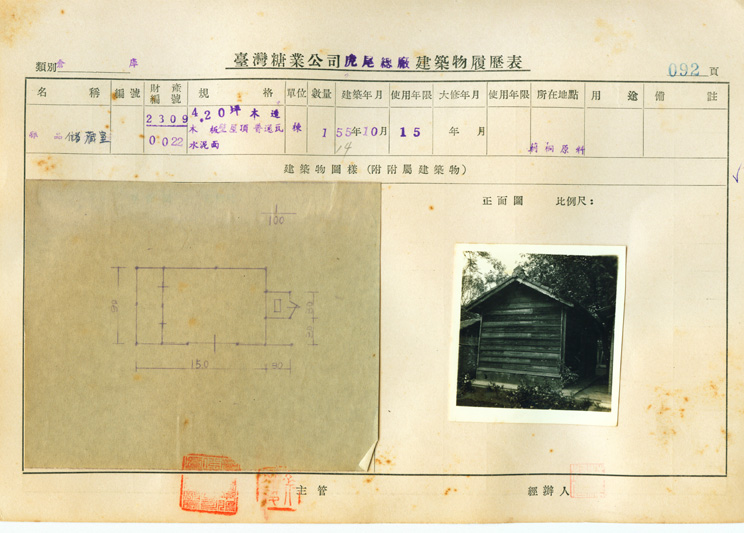 臺灣糖業公司虎尾總廠建築物履歷表
類別 倉庫
092頁
名稱 編號 財產編號 規格 單位 數量 建築年月 使用年限 大修年月 使用年限 所在地點 用途 備註
儲藏室 2309 0022 4.20坪木造 木板壁屋頂普通瓦 水泥面 棟 1 55年10月 15 年 月 莿桐原料
14
建築物圖樣(附附屬建築物)
正面圖 比例尺:
1/100
150
90
主管 經辦人